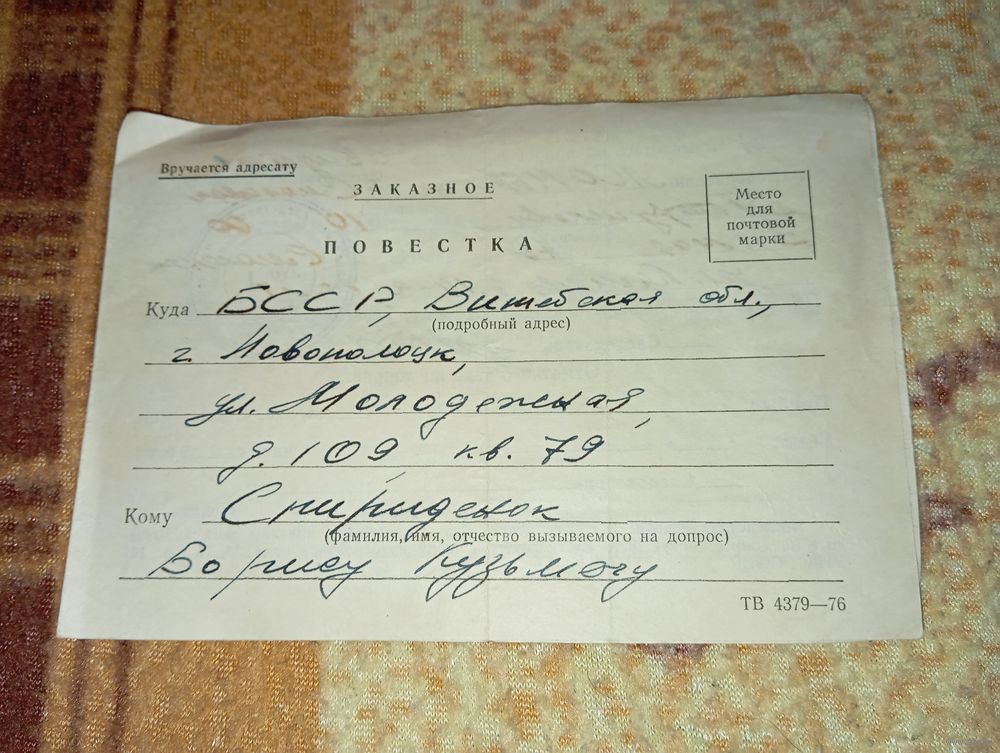 Вручается адресату
ЗАКАЗНОЕ
ПОВЕСТКА
Место
для
почтовой
марки
Куда БССР, Витебская обл.,
(подробный адрес)
г. Новополоцк,
ул. Молодежная,
д. 109, кв. 79
Кому Спириденок
(фамилия, имя, отчество вызываемого на допрос)
Борису Кузьмичу
ТВ 4379—76